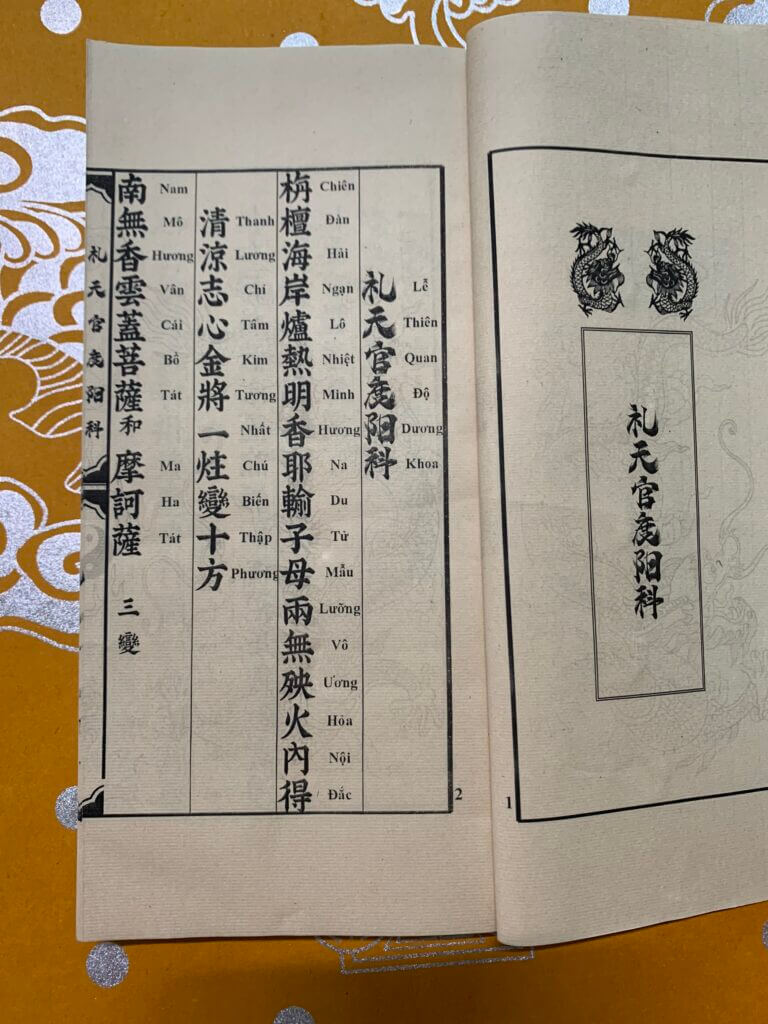 礼天官度阳科
1
礼天官度阳科
Lễ Thiên Quan Độ Dương Khoa
栴檀海岸爐熱明香耶輸子母兩無殃火內得
Chiên Đàn Hải Ngạn Lô Nhiệt Minh Hương Na Du Tử Mẫu Lưỡng Vô Ương Hỏa Nội Đắc
清涼志心金將一炷變十方
Thanh Lương Chí Tâm Kim Tương Nhất Chú Biến Thập Phương
南無香雲蓋菩薩和摩訶薩 三變
Nam Mô Hương Vân Cái Bồ Tát Ma Ha Tát
礼天官度阳科
2